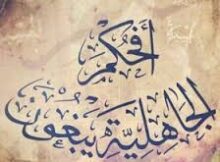 أفحكم
الجاهلية يبغون